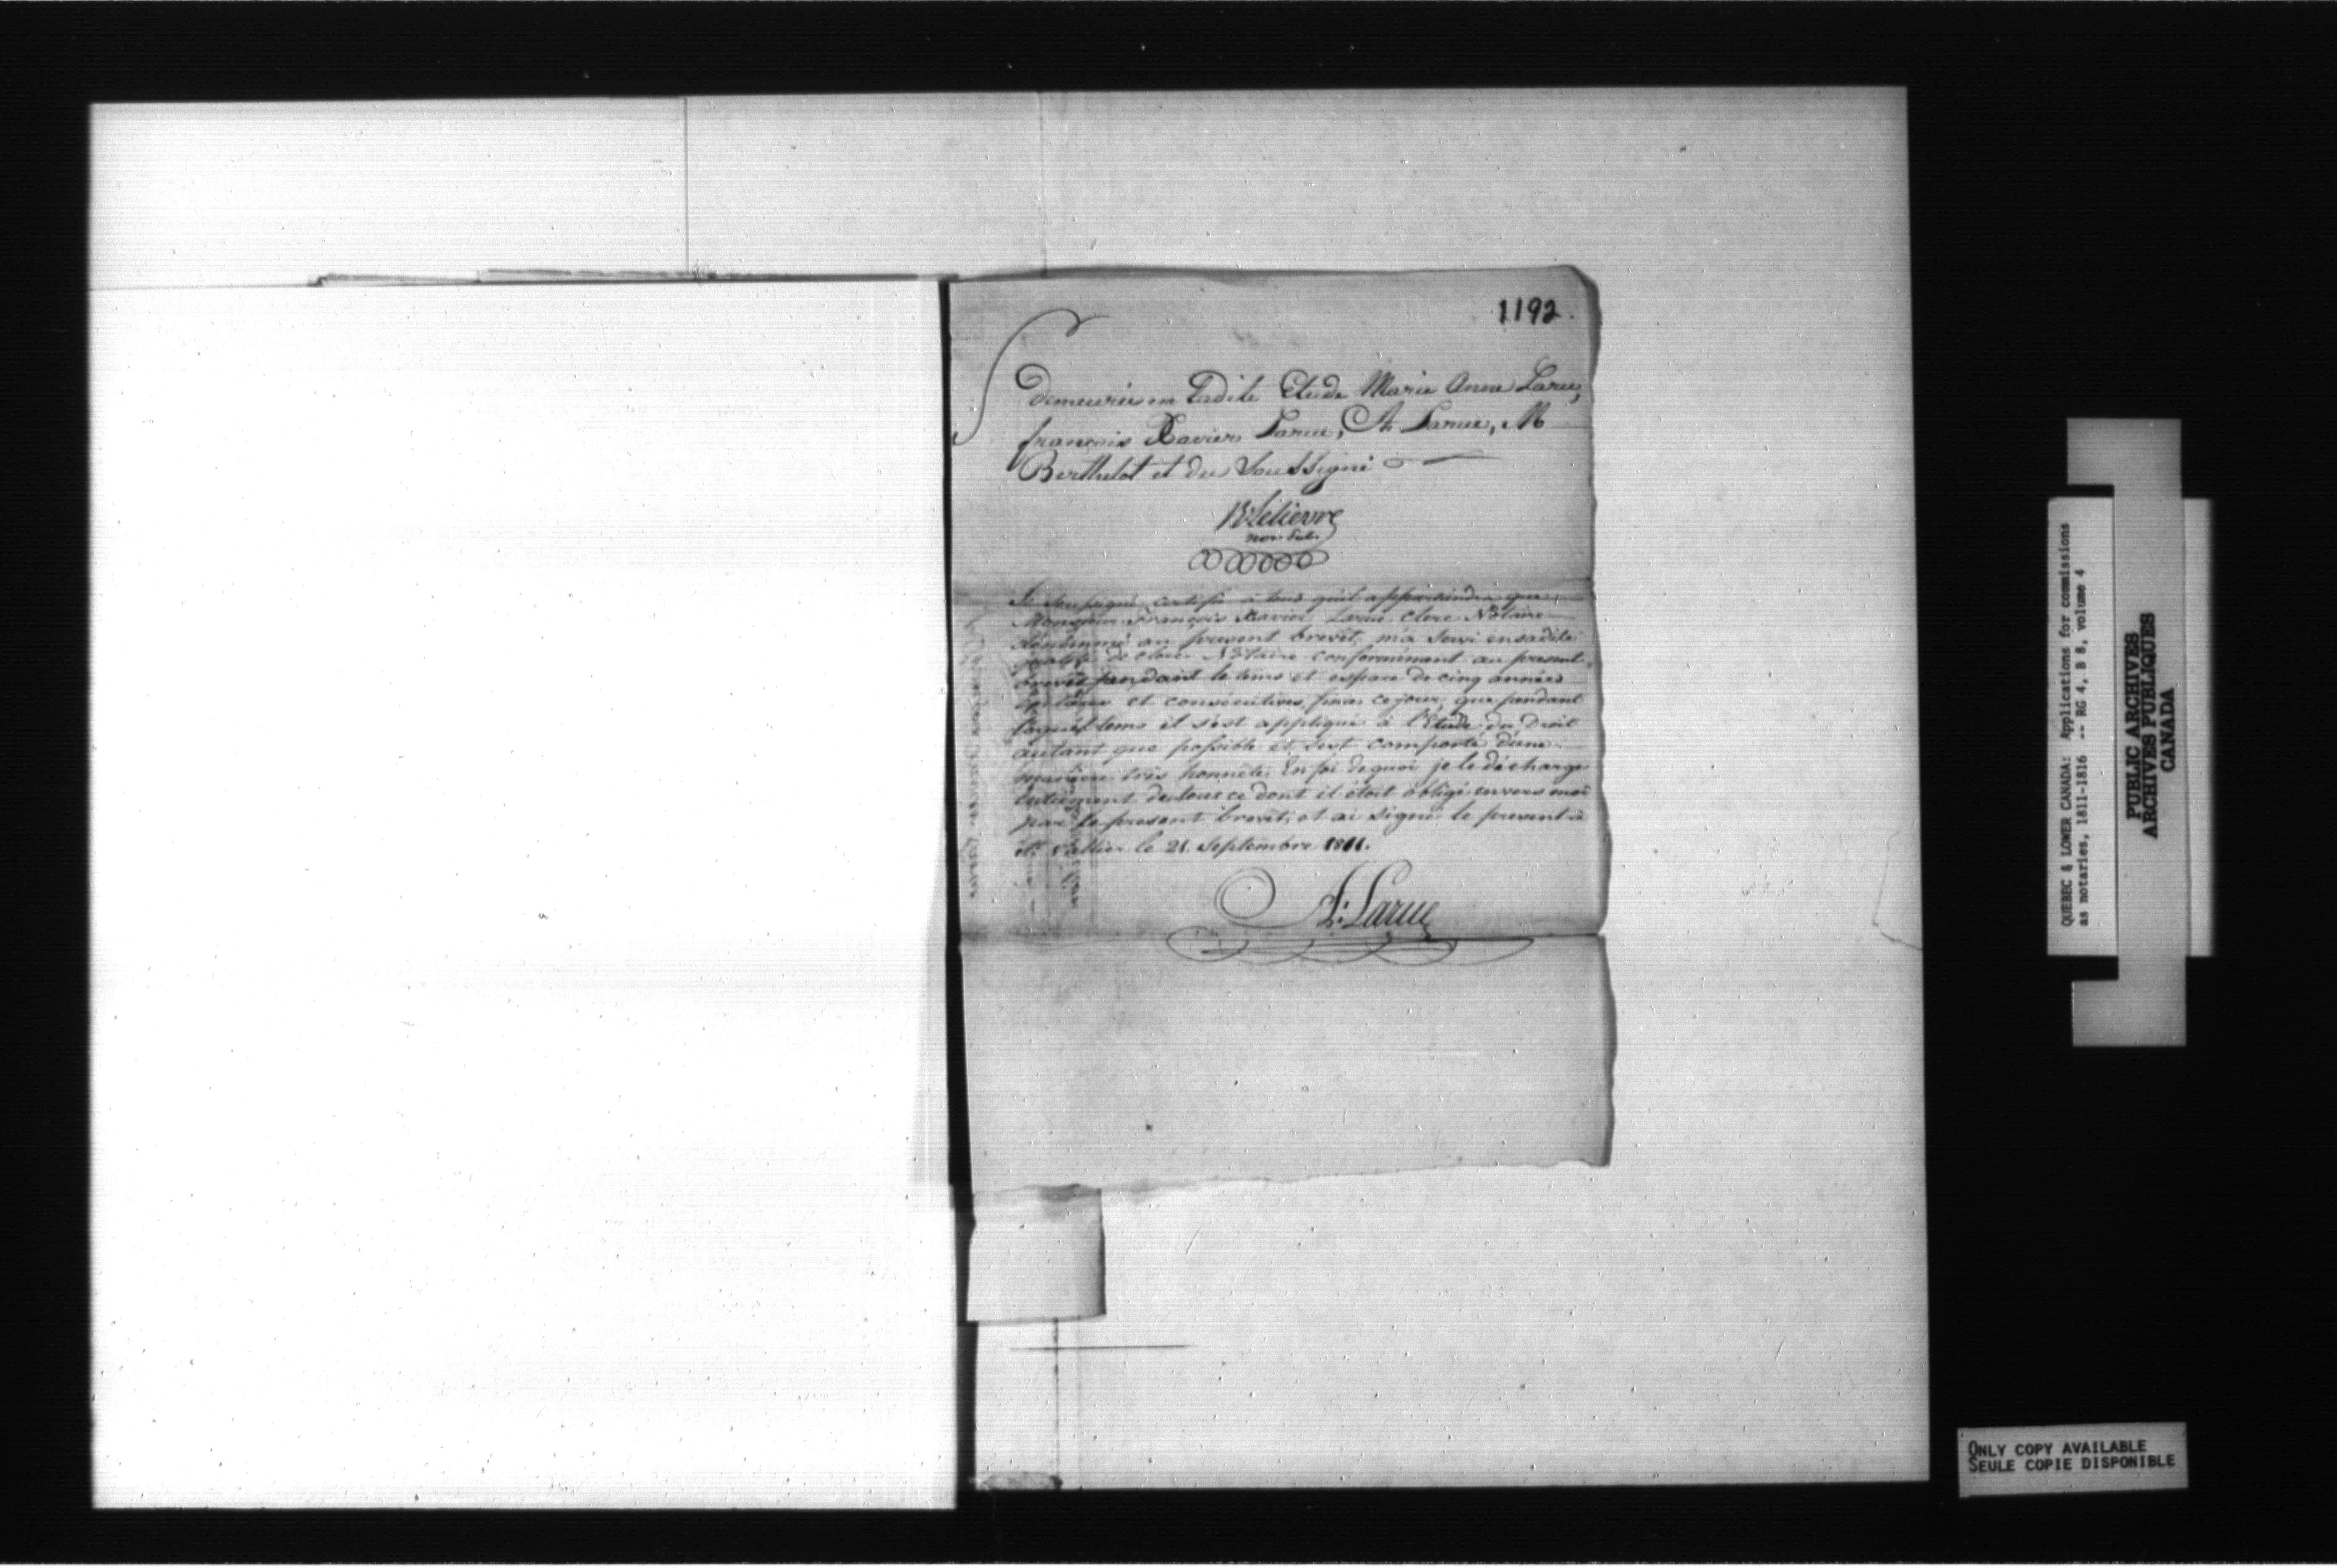 1192.
Demeurée en Ladite Etude Marie Anne Larue,
françois Xavier Larue, A. Larue, M
Berthelot et du Soussigné
R: Lelievre
not. Pub.
Je Soussigné certifie à tous qu'il appartiendra que,
Monsieur François Xavier Larue Clerc Notaire
dénommé au present brevêt, m'a servi en sadite
qualité de clerc Notaire conformément au present
brevêt pendant le tems et espace de cinq années
entieres et consécutives, finies ce jour, que pendant
lequel tems il s'est appliqué à l'Etude du Droit
autant que possible et s'est comporté d'une
maniere très honnête. En foi de quoi je le décharge
entierement de tout ce dont il étoit obligé envers moi
par le present brevêt, et ai signé le present à
St. Vallier le 21. Septembre 1811.
A: Larue
QUEBEC & LOWER CANADA: Applications for commissions
as notaries, 1811-1816 -- RG 4, B 8, volume 4
PUBLIC ARCHIVES
ARCHIVES PUBLIQUES
CANADA
ONLY COPY AVAILABLE
SEULE COPIE DISPONIBLE